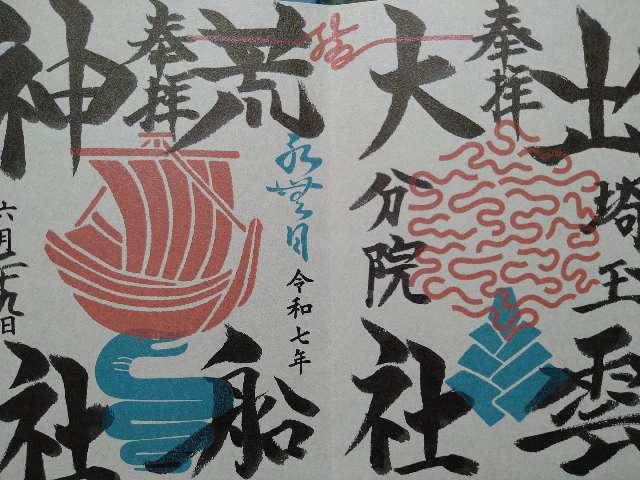 出雲
奉拝
埼玉
大社
分院
荒船
奉拝
水無月
令和七年
神社
六月二十九日